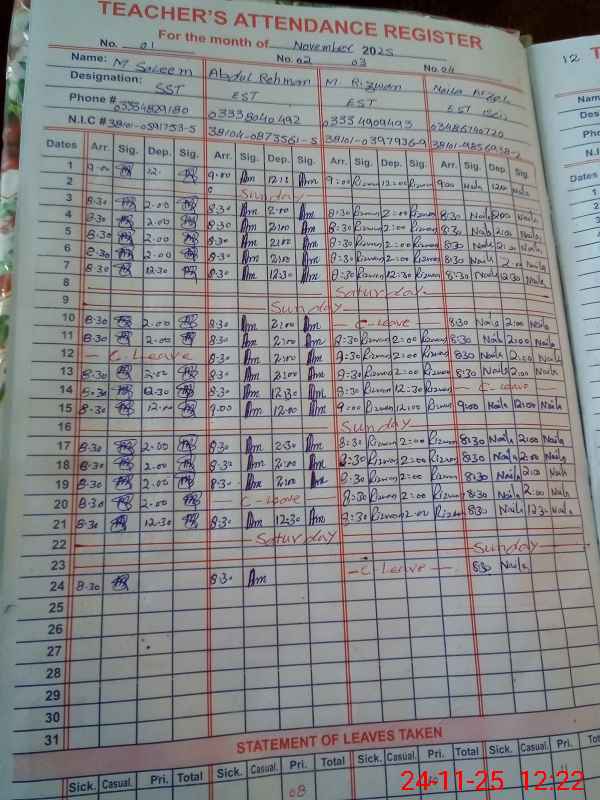 TEACHER'S ATTENDANCE REGISTER
For the month of November 2025
No. 01 No. 02 03 No. 04
Name: M Saleem Abdul Rehman M. Rizwan
Designation: SST EST EST EST
Phone # 03338040492 03334909493
N.I.C # 38104-0873561-5
Dates Arr. Sig. Dep. Sig. Arr. Sig. Dep. Sig. Arr. Sig. Dep. Sig. Arr. Sig. Dep. Sig.
1 9.00 12. 9.00 Am 12:15 Am 9:00 Rizwan 12:00 Rizwan 9:00 Naila 12:00 Naila
2 Sunday
3 8.30 2.00 8:30 Am 2:00 Am 8:30 Rizwan 2:00 Rizwan 8:30 Naila 2:00 Naila
4 8.30 2.00 8:30 Am 2:00 Am 8:30 Rizwan 2:00 Rizwan 8:30 Naila 2:00 Naila
5 8.30 2.00 8:30 Am 2:00 Am 8:30 Rizwan 2:00 Rizwan 8:30 Naila 2:00 Naila
6 8.30 2.00 8:30 Am 2:00 Am 8:30 Rizwan 2:00 Rizwan 8:30 Naila 2:00 Naila
7 8.30 12.30 8:30 Am 12:30 Am 8:30 Rizwan 12:30 Rizwan 8:30 Naila 12:30 Naila
8 Saturday
9 Sunday
10 8.30 2.00 8:30 Am 2:00 Am C-Leave 8:30 Naila 2:00 Naila
11 8.30 2.00 8:30 Am 2:00 Am 8:30 Rizwan 2:00 Rizwan 8:30 Naila 2:00 Naila
12 C-Leave 8:30 Am 2:00 Am 8:30 Rizwan 2:00 Rizwan 8:30 Naila 2:00 Naila
13 8.30 2.00 8:30 Am 2:00 Am 8:30 Rizwan 2:00 Rizwan 8:30 Naila 2:00 Naila
14 8.30 12.30 8:30 Am 12:30 Am 8:30 Rizwan 12:30 Rizwan C-Leave
15 8.30 12.00 9.00 Am 12:00 Am 9:00 Rizwan 12:00 Rizwan 9:00 Naila 12:00 Naila
16 Sunday
17 8.30 2.00 8:30 Am 2:30 Am 8:30 Rizwan 2:00 Rizwan 8:30 Naila 2:00 Naila
18 8.30 2.00 8:30 Am 2:00 Am 8:30 Rizwan 2:00 Rizwan 8:30 Naila 2:00 Naila
19 8.30 2.00 8:30 Am 2:00 Am 8:30 Rizwan 2:00 Rizwan 8:30 Naila 2:00 Naila
20 8.30 2.00 C-Leave 8:30 Rizwan 2:00 Rizwan 8:30 Naila 2:00 Naila
21 8.30 12.30 8:30 Am 12:30 Am 8:30 Rizwan 2:00 Rizwan 8:30 Naila 12:30 Naila
22 Saturday
23 Sunday
24 8.30 8:30 Am C-Leave 8:30 Naila
25
26
27
28
29
30
31
STATEMENT OF LEAVES TAKEN
Sick. Casual. Pri. Total Sick. Casual. Pri. Total Sick. Casual. Pri. Total Sick. Casual. Pri. Total
08
24-11-25 12:22
12
T
Name
Desi
Pho
N.I.
Dates
1
2
3
4
5
6
7